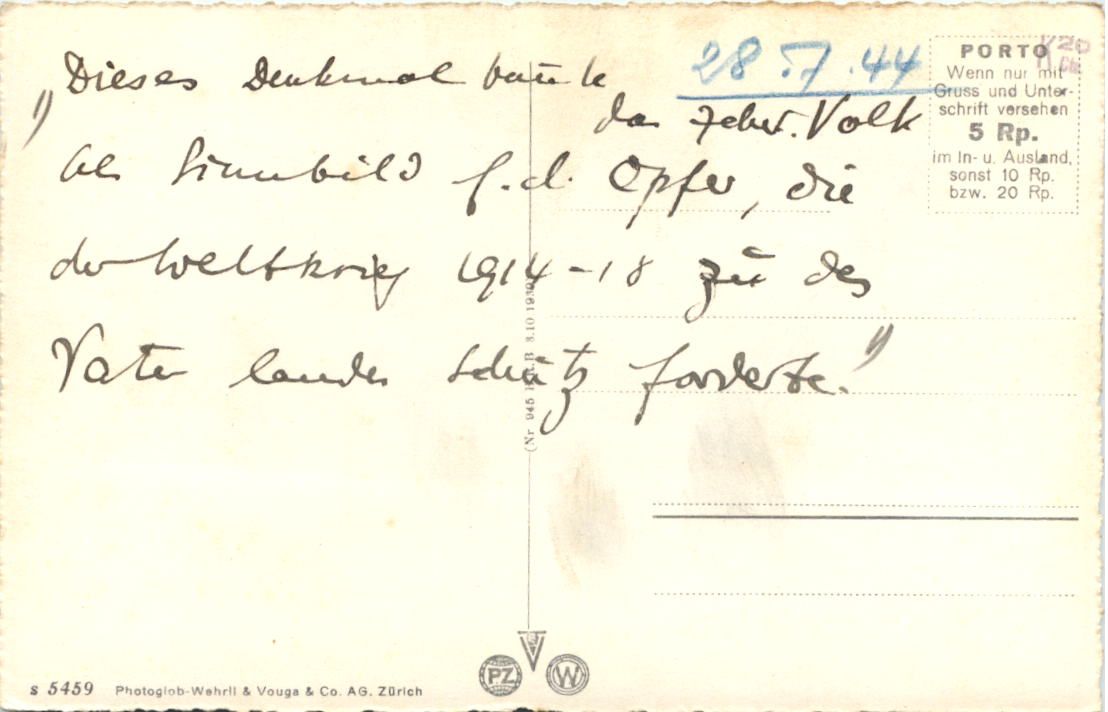 28.V.44
PORTO
Wenn nur mit
Gruss und Unter-
schrift versehen
5 Rp.
im In- u. Ausland,
sonst 10 Rp.
bzw. 20 Rp.
"Dieses Denkmal baute
das Volk
als Sinnbild f. d. Opfer, die
der Weltkrieg 1914-18 zu des
Vaterlandes Schutz forderte."
PZ
W
s 5459 Photoglob-Wehrli & Vouga & Co. AG. Zürich